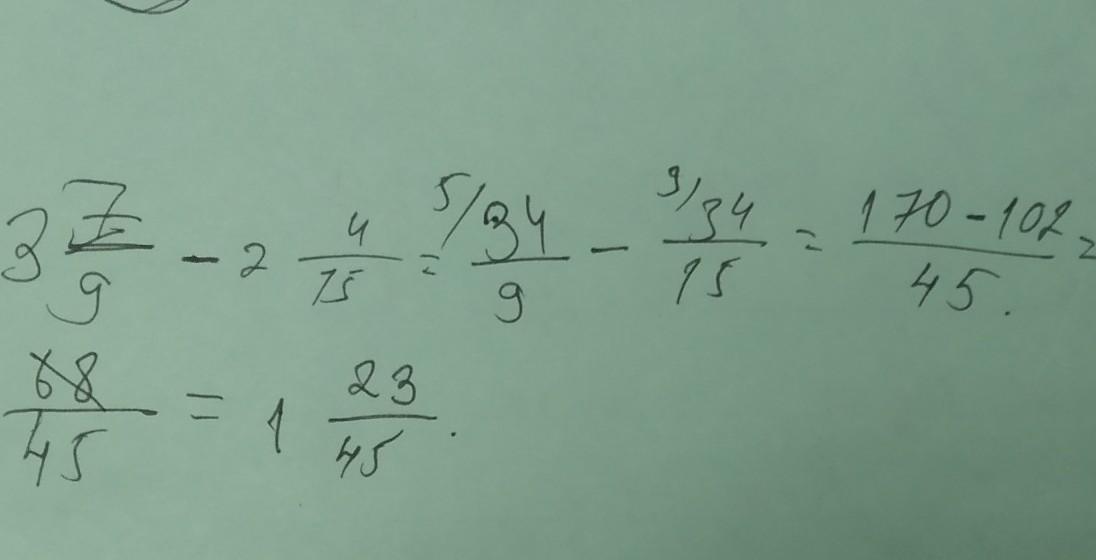 3 7/9 - 2 4/15 = 5/ 34/9 - 3/ 34/15 = 170-102/45. =
68/45 = 1 23/45.